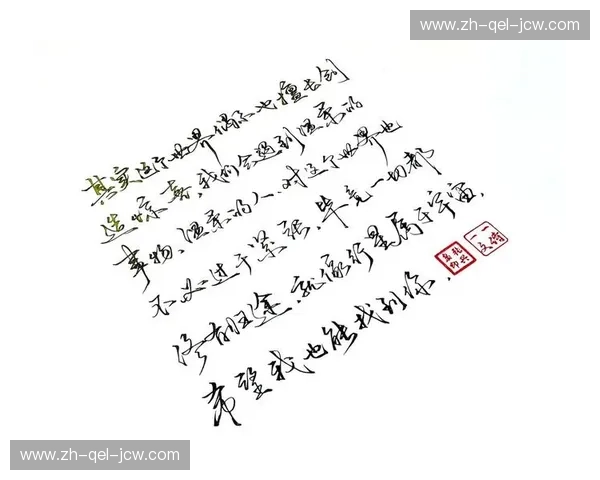 www.zh-qel-jcw.com
其实这个世界偶尔也擅长创
造惊喜,我们会遇到温柔的
事物、温柔的人、对这个世界也
不必过于紧张,毕竟一切都
终有归途,就像行星属于宇宙,
希望我也能找到你.
www.zh-qel-jcw.com